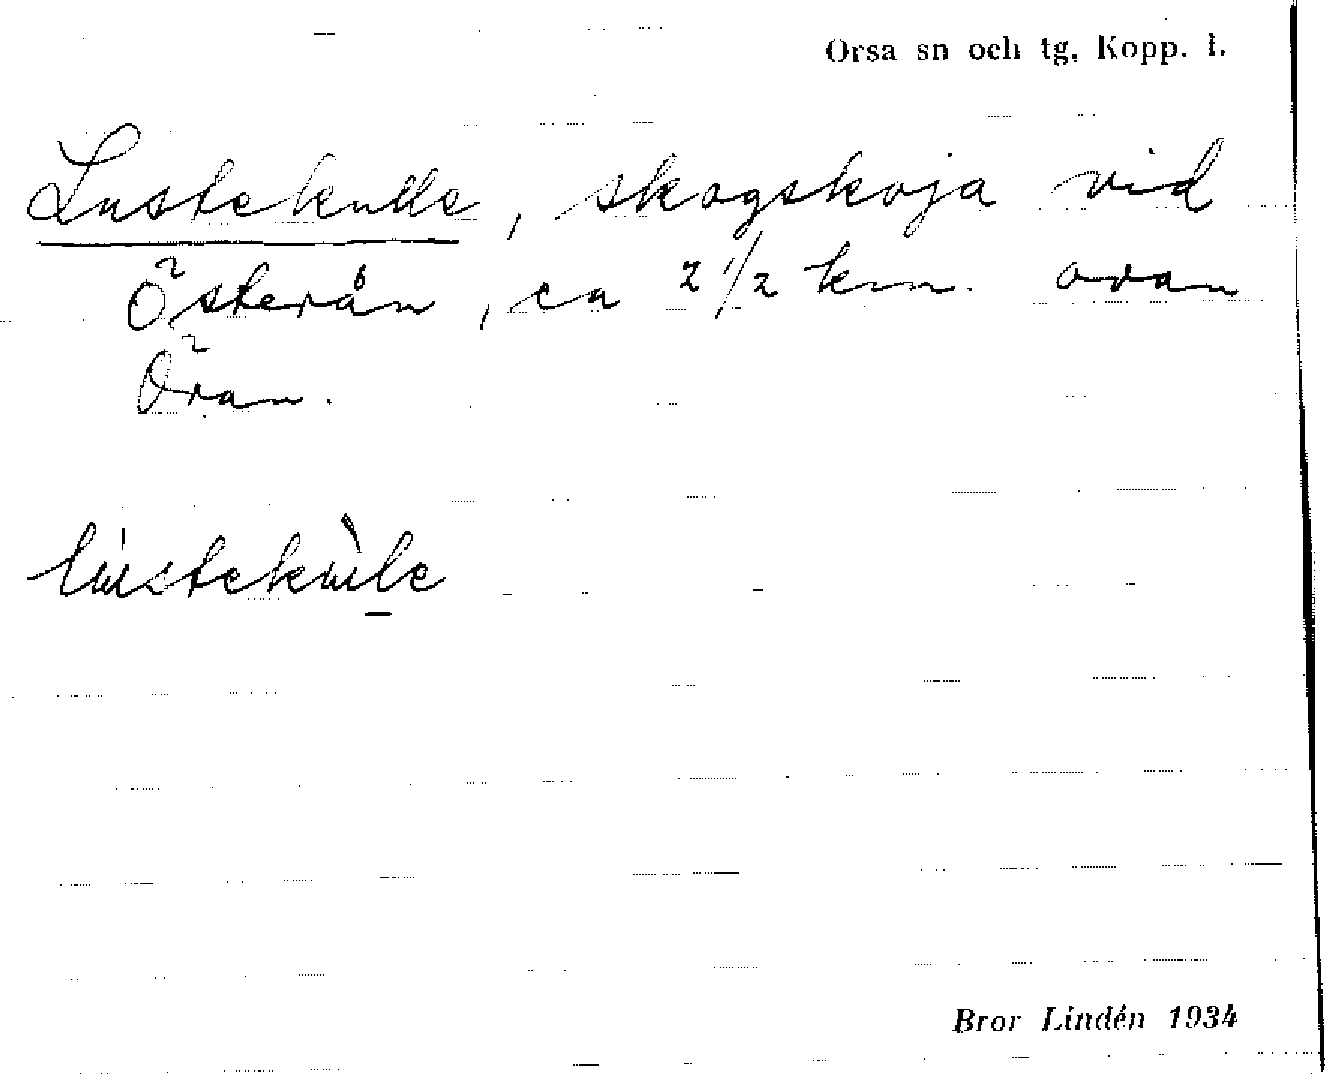 Orsa sn och tg, Kopp. l.
Lustekulle, skogskoja vid
Österån, ca 2 1/2 km. ovan
Öran.
lústekùle
Bror Lindén 1934